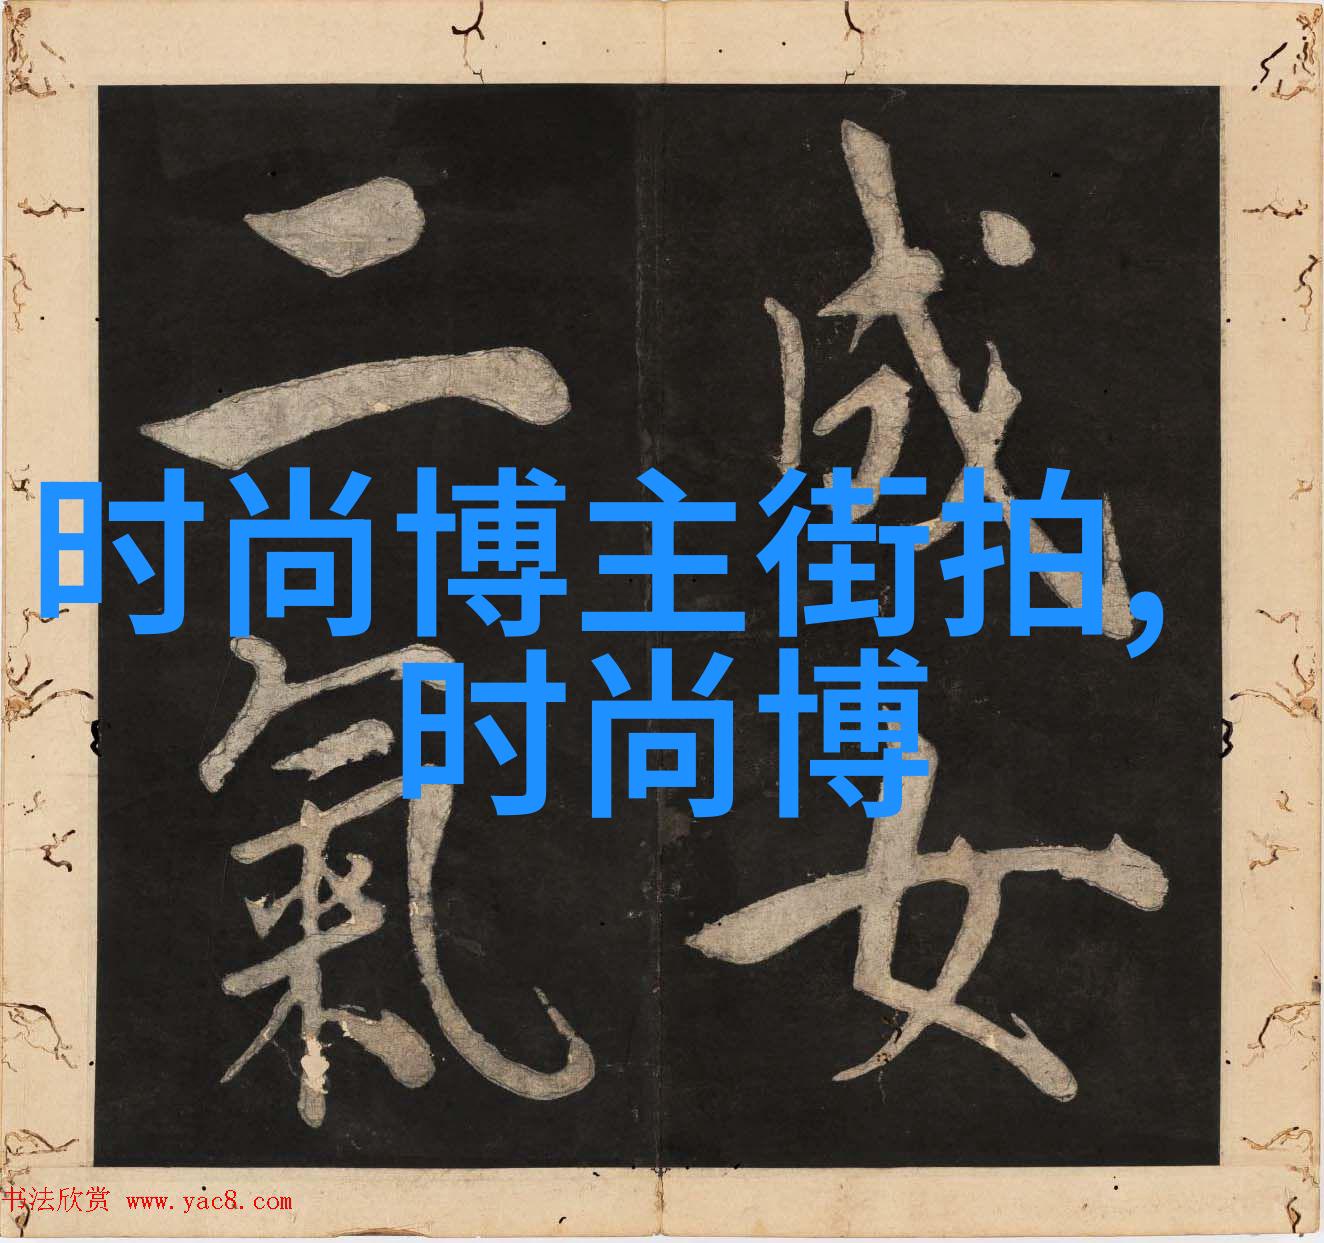 成女
二氣
时尚博主街拍,
时尚博
书法欣赏 www.yac8.com